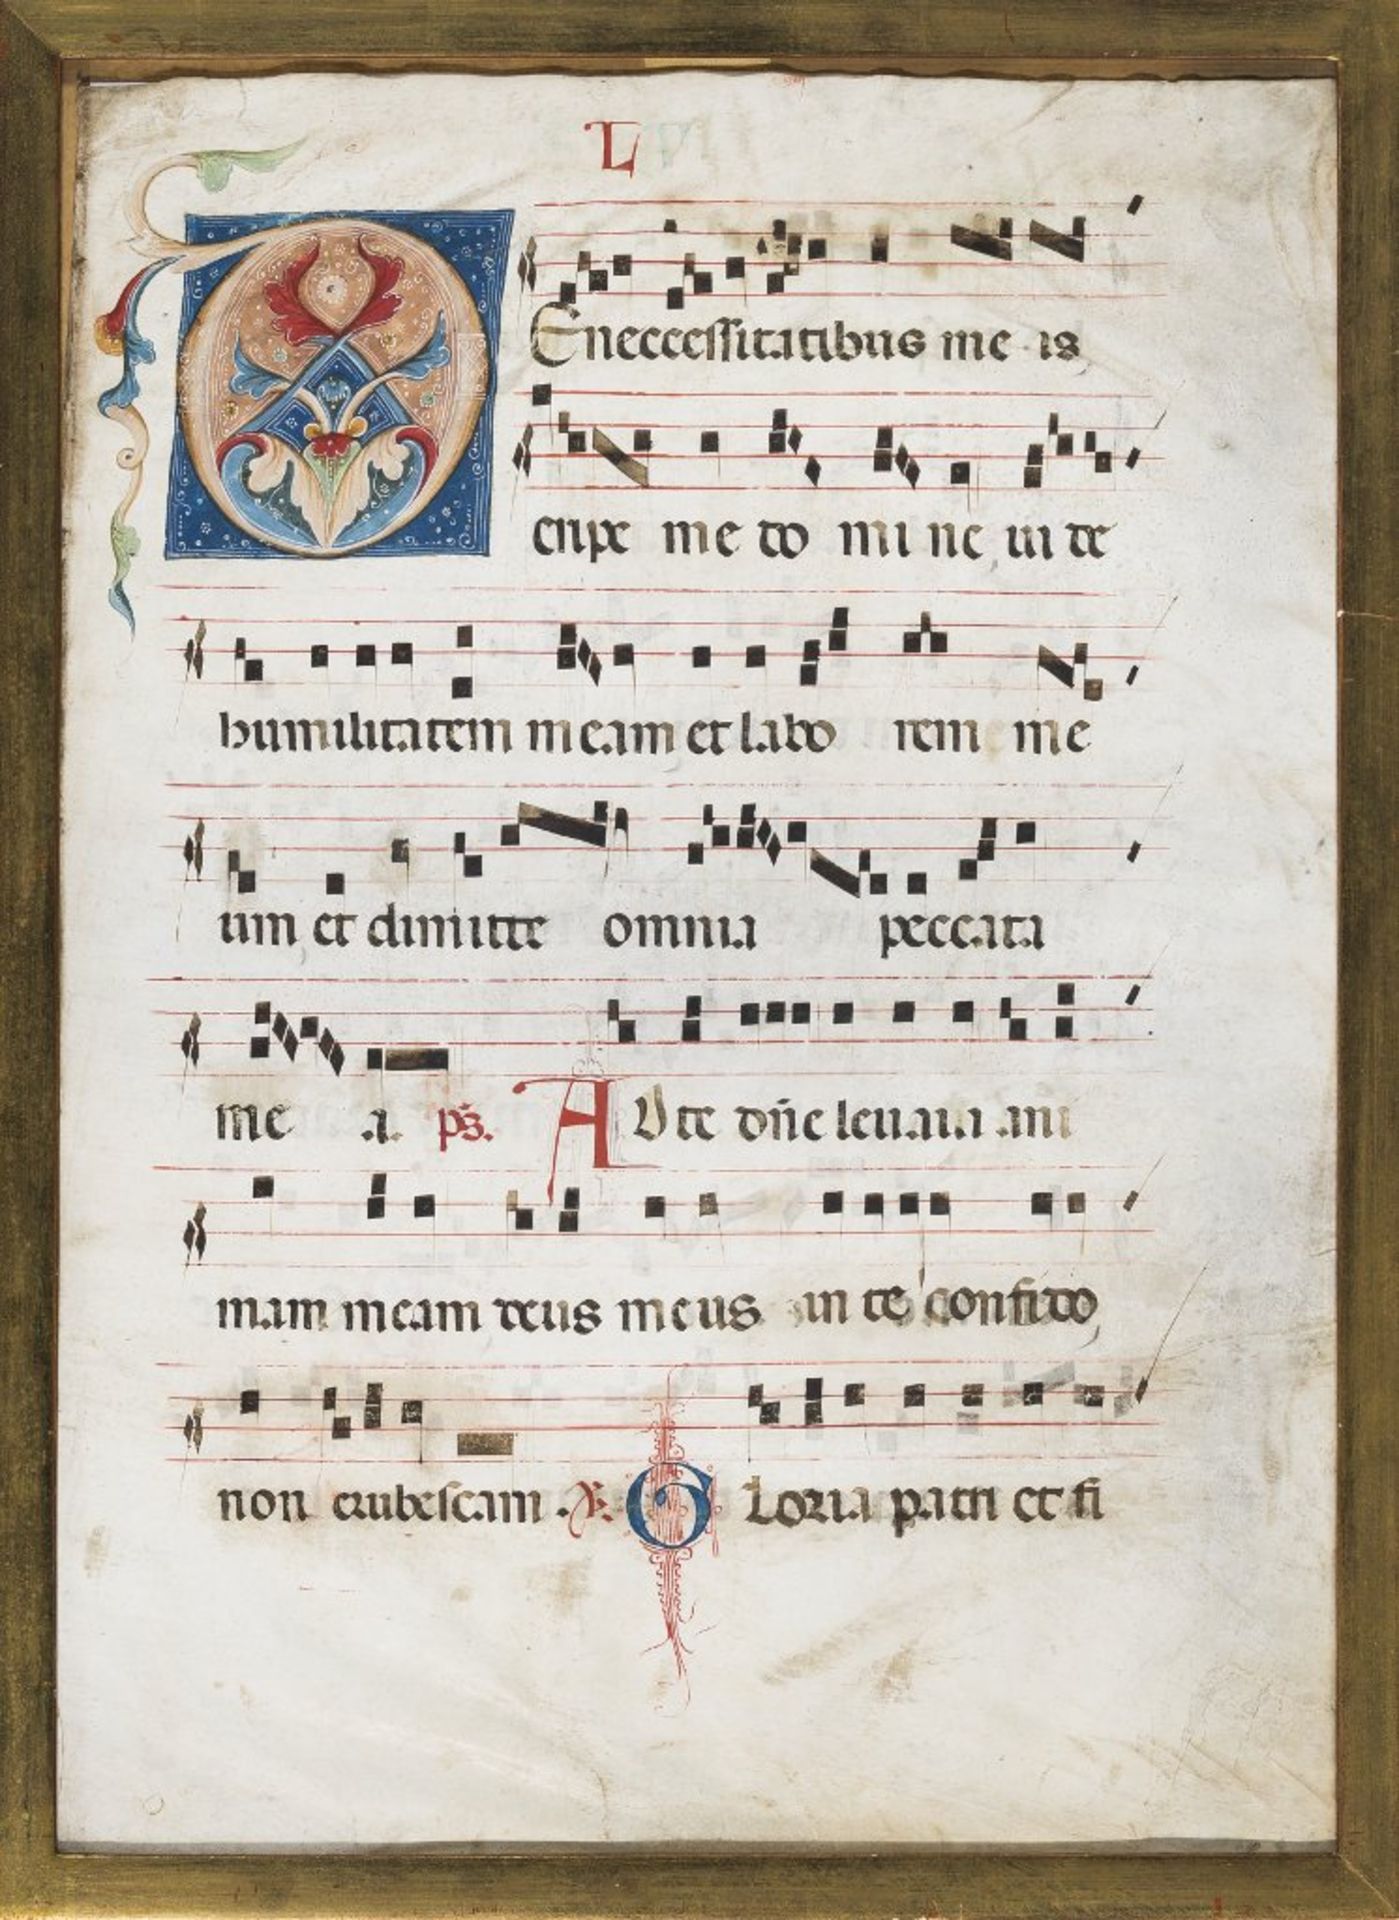 L
Eneccessitatibus me is
eripe me do mi ne vi de
humilitatem meam et labo rem me
um et dimitte omnia peccata
me a. ps. A D te dñe levavi ani
mam meam deus meus in te confido
non erubescam. V. G Loria patri et fi